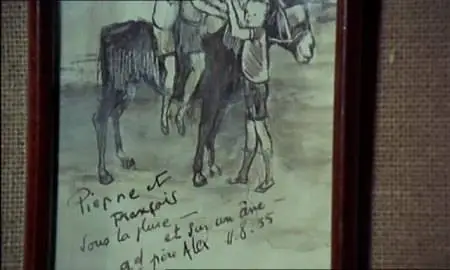 Pierre et
François
sous la pluie —
et sur un âne —
gd père Alex 11.8.55